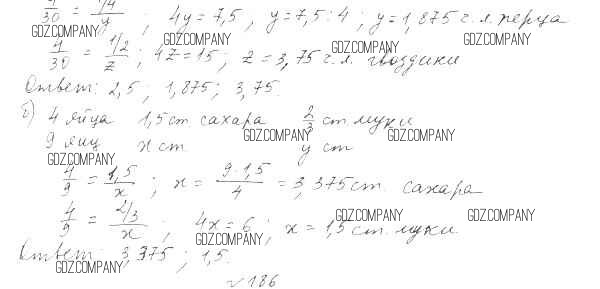 4/30 = 1/4/y ; 4y = 7,5, y = 7,5 : 4; y = 1,875 ч. л. перца
GDZ.COMPANY GDZ.COMPANY GDZ.COMPANY
4/30 = 1/2/z ; 4z = 15; z = 3,75 ч. л. гвоздики
Ответ: 2,5; 1,875; 3,75.
б) 4 яйца 1,5 ст сахара 2/3 ст муки
GDZ.COMPANY GDZ.COMPANY
9 яиц x ст y ст
GDZ.COMPANY
4/9 = 1,5/x ; x = 9·1,5/4 = 3,375 ст. сахара
GDZ.COMPANY GDZ.COMPANY
4/9 = 2/3/x ; 4x = 6; x = 1,5 ст. муки
GDZ.COMPANY
Ответ: 3,375; 1,5.
GDZ.COMPANY
√186